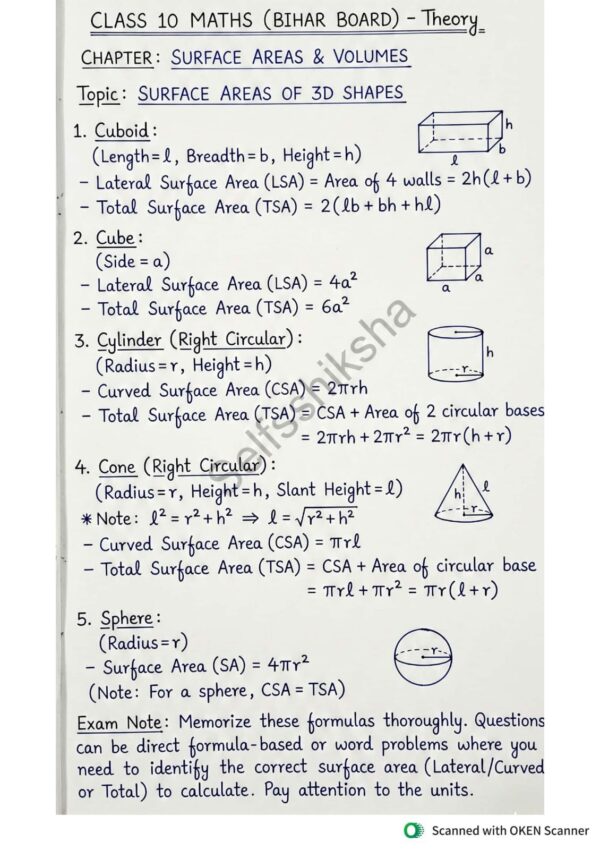 CLASS 10 MATHS (BIHAR BOARD) - Theory
CHAPTER: SURFACE AREAS & VOLUMES
Topic: SURFACE AREAS OF 3D SHAPES
1. Cuboid:
(Length = l, Breadth = b, Height = h)
h
b
l
- Lateral Surface Area (LSA) = Area of 4 walls = 2h(l + b)
- Total Surface Area (TSA) = 2(lb + bh + hl)
2. Cube:
(Side = a)
a
a
a
- Lateral Surface Area (LSA) = 4a²
- Total Surface Area (TSA) = 6a²
3. Cylinder (Right Circular):
(Radius = r, Height = h)
h
r
- Curved Surface Area (CSA) = 2πrh
- Total Surface Area (TSA) = CSA + Area of 2 circular bases
= 2πrh + 2πr² = 2πr(h + r)
4. Cone (Right Circular):
(Radius = r, Height = h, Slant Height = l)
h
l
r
* Note: l² = r² + h² ⇒ l = √(r² + h²)
- Curved Surface Area (CSA) = πrl
- Total Surface Area (TSA) = CSA + Area of circular base
= πrl + πr² = πr(l + r)
5. Sphere:
(Radius = r)
r
- Surface Area (SA) = 4πr²
(Note: For a sphere, CSA = TSA)
Exam Note: Memorize these formulas thoroughly. Questions
can be direct formula-based or word problems where you
need to identify the correct surface area (Lateral/Curved
or Total) to calculate. Pay attention to the units.
Selfsshiksha
Scanned with OKEN Scanner